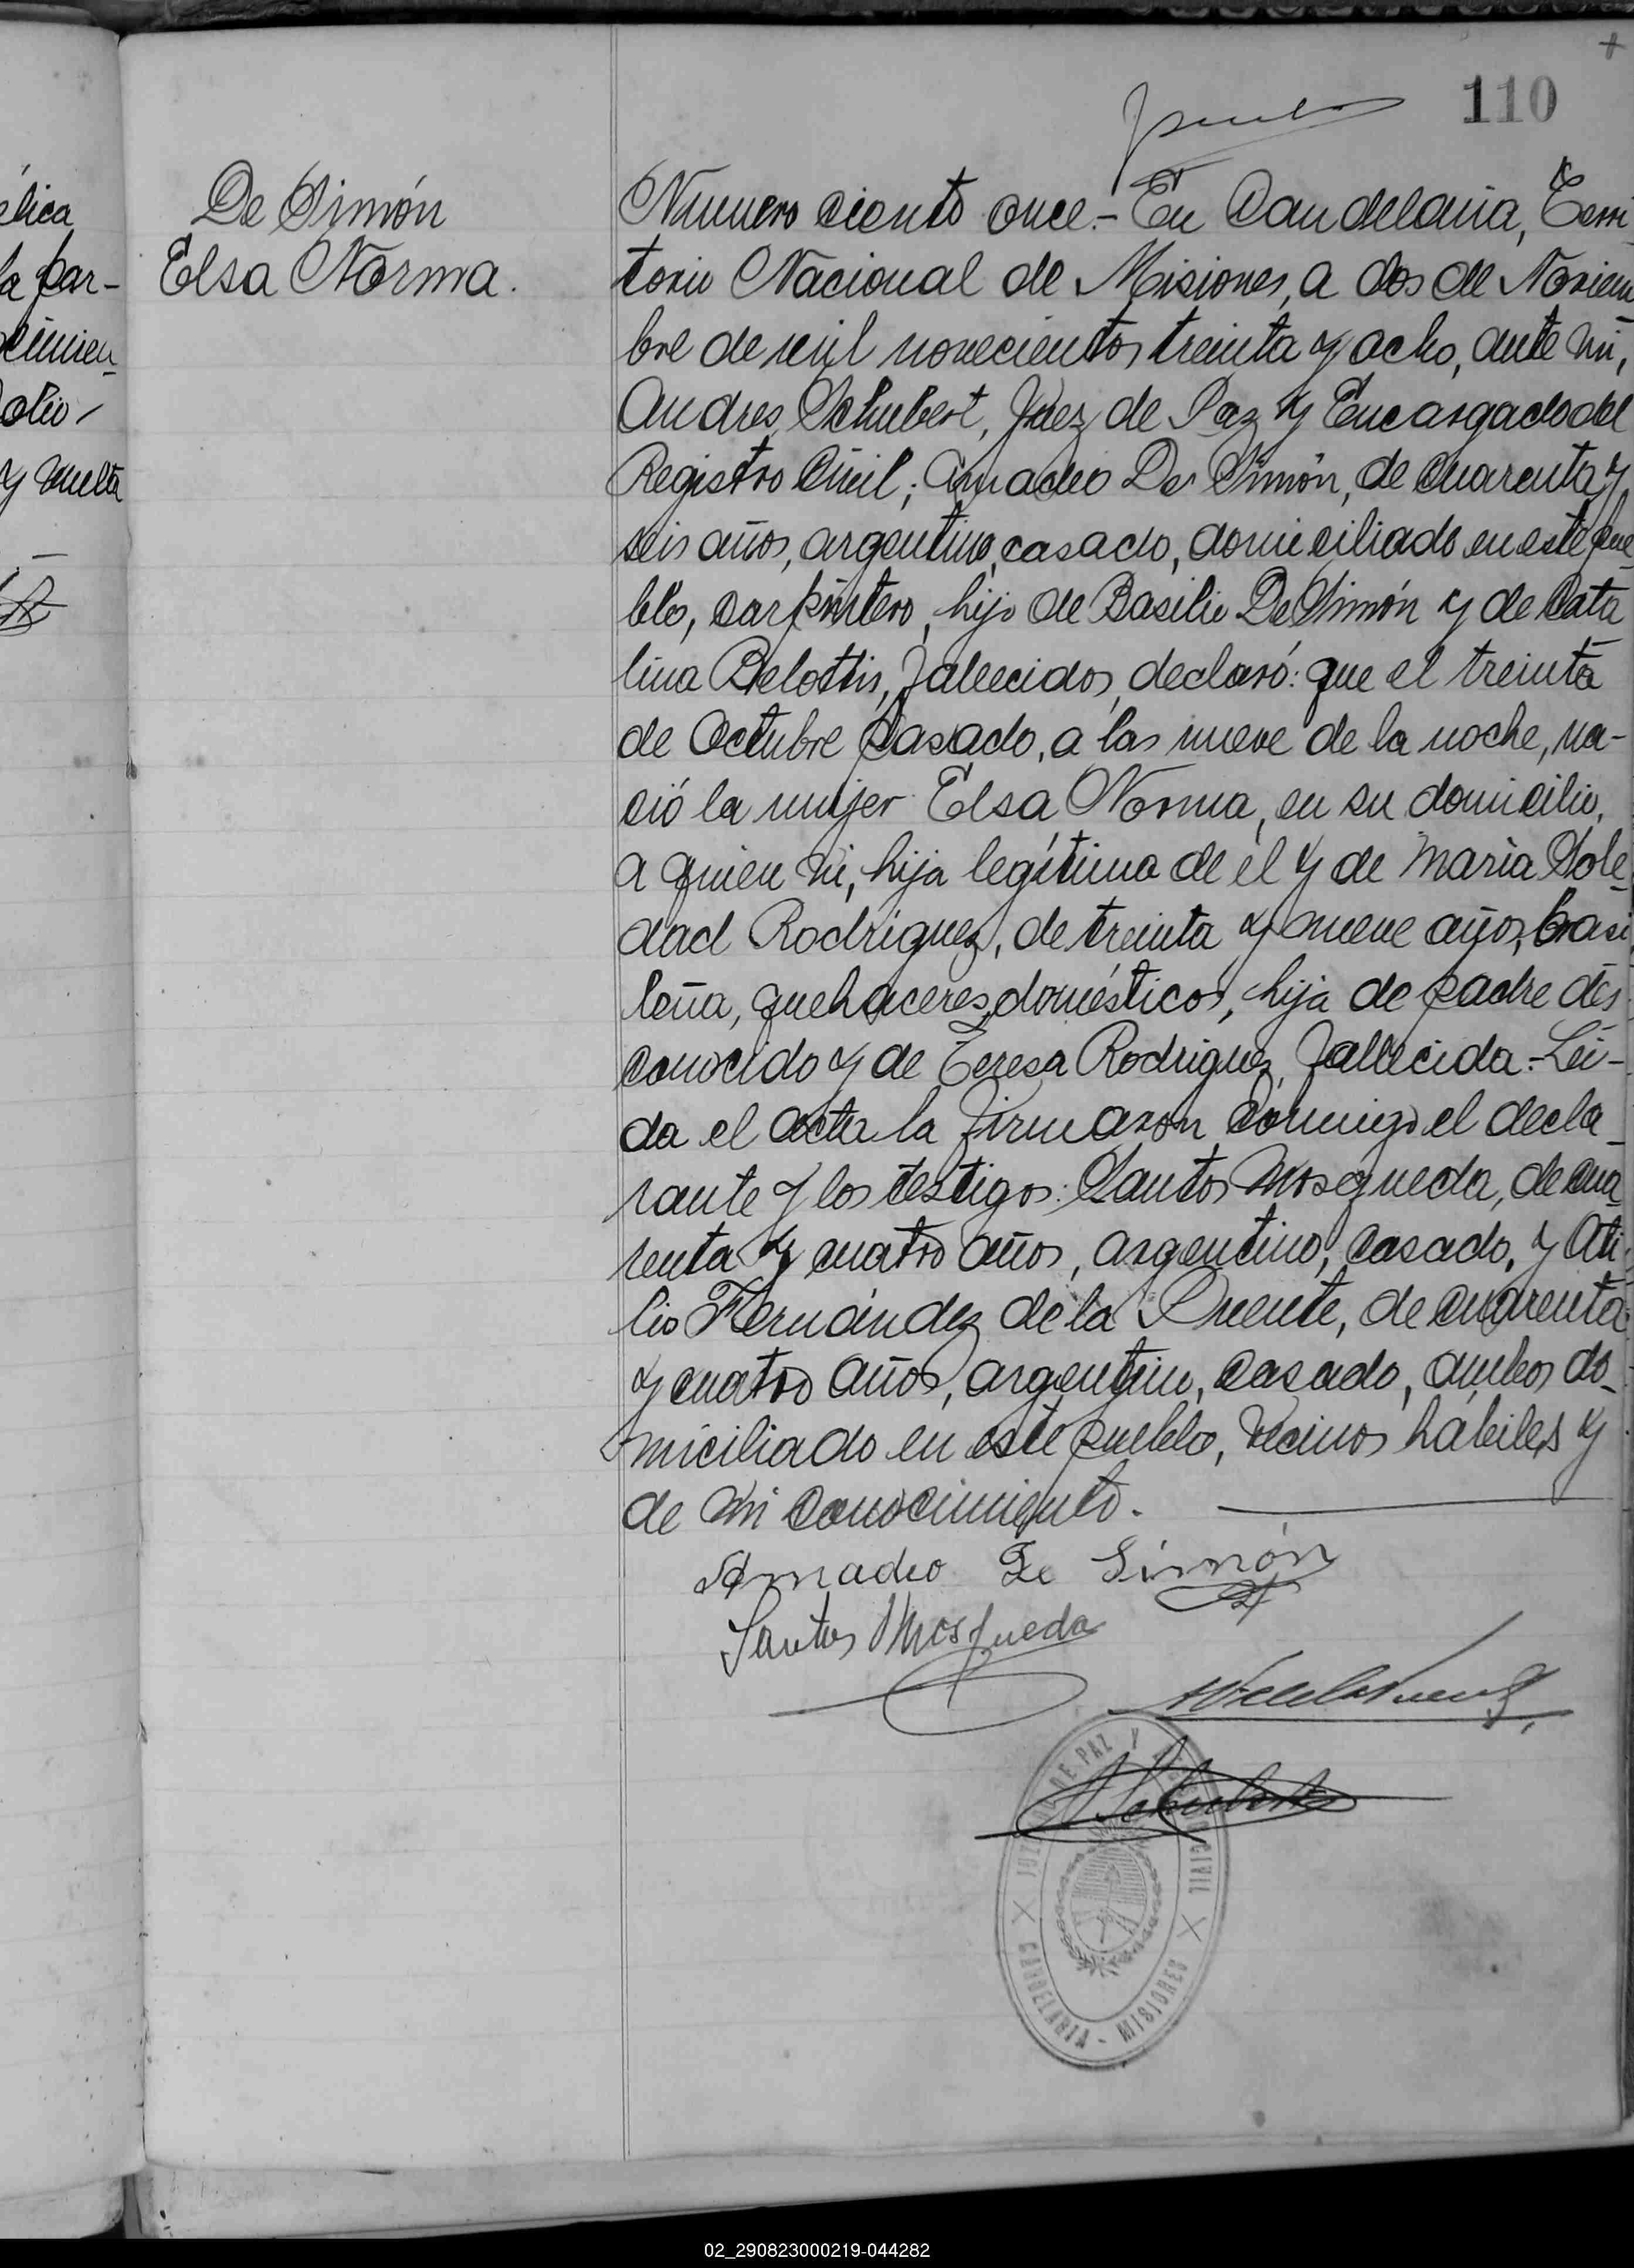 110
De Simón
Elsa Norma.
Numero ciento once.- En Candelaria, Terri-
torio Nacional de Misiones, a dos de Noviem
bre de mil novecientos treinta y ocho, ante mi,
Andres Schubert, Juez de Paz y Encargado del
Registro Civil; Amadeo De Simón, de cuarenta y
seis años, argentino, casado, domiciliado en este pue-
blo, carpintero, hijo de Basilio De Simón y de Cata
lina Belottis, fallecidos, declaró: que el treinta
de Octubre pasado, a las nueve de la noche, na-
ció la mujer Elsa Norma, en su domicilio,
a quien vi, hija legítima de él y de Maria Sole-
dad Rodriguez, de treinta y nueve años, brasi
leña, quehaceres domésticos, hija de padre des
conocido y de Teresa Rodriguez, fallecida.- Leí-
da el acta la firmaron conmigo el decla-
rante y los testigos: Santos Mosqueda, de cua
renta y cuatro años, argentino, casado, y Ati-
lio Fernández de la Puente, de cuarenta
y cuatro años, argentino, casado, ambos do-
miciliado en este pueblo, vecinos hábiles y
de mi conocimiento.
Amadeo De Simón
Santos Mosqueda
A Schubert
JUZGADO DE PAZ Y REGISTRO CIVIL
CANDELARIA - MISIONES
élica
la par-
cimien-
olio
y vuelta
02_290823000219-044282